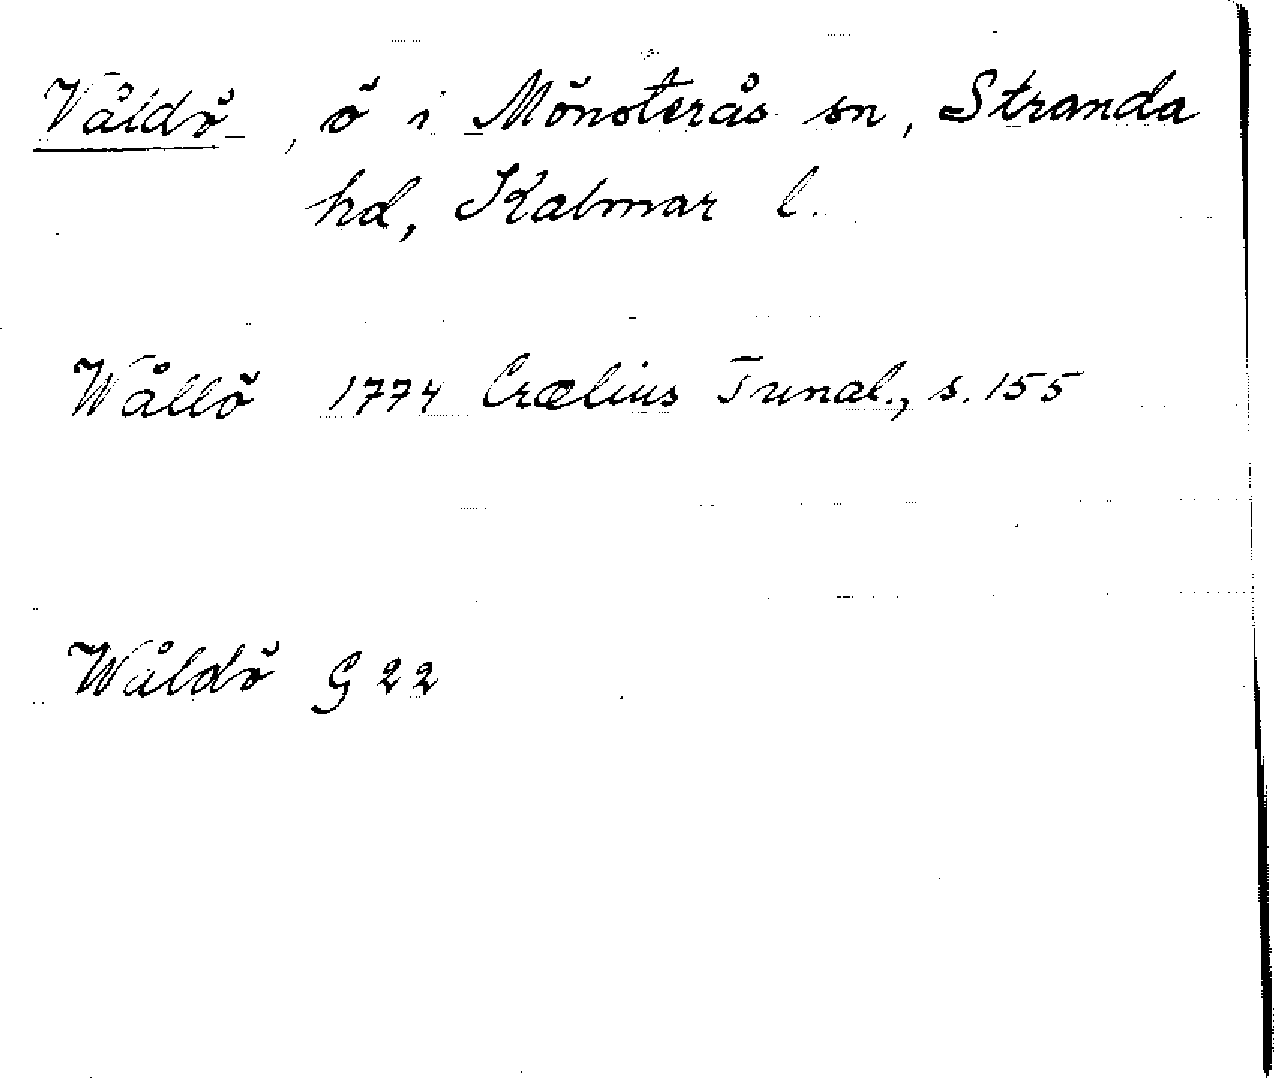 Våldö, ö i Mönsterås sn, Stranda
hd, Kalmar l.
Wållö 1774 Crælius Tunal., s. 155
Wåldö G 22